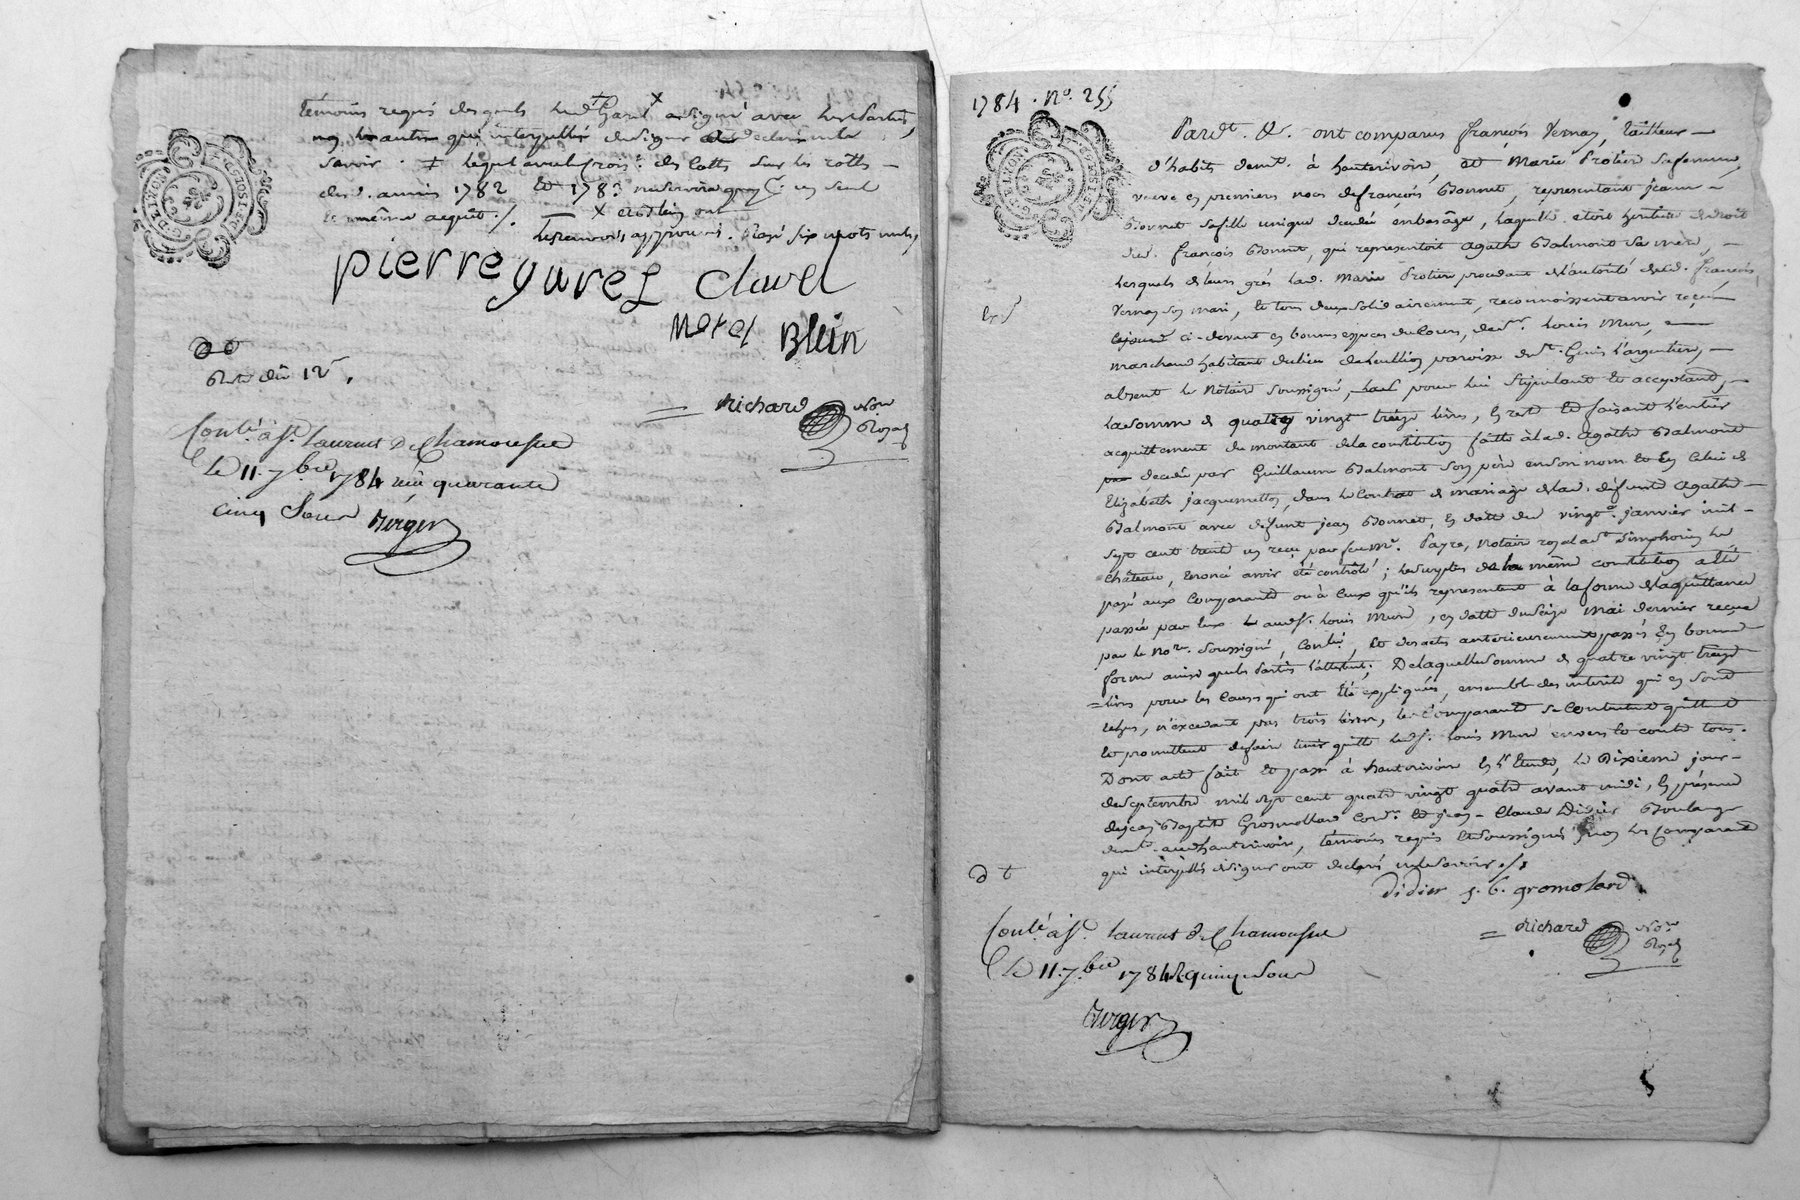 témoins requis desquels led. Garel a signé avec les parties,
non les autres qui interpellés de signer ont déclaré ne le
savoir . ≠ lequel avec les trois des cottes sur les rolles
des d. années 1782 et 1783 ne servira que d'un seul
et même acquit ./. × ont
les renvois approuvés. Rayé six mots nuls,
pierre garel Clavel
Morel Blein
Richard Nore
Royal
Bte du 12
Conlé à St. Laurent De Chamousset
Le 11. 7bre 1784 reçu quarante
cinq Sous Berger
G. DE LYON
1784 . No. 255
Pardt. &. ont comparus françois Vernay, tailleur
d'habits demt. à hauterivoire, et Marie Protier sa femme,
veuve en premiers noces de françois Bonnet, representant jeanne
Bonnet sa fille unique decedée en bas âge, laquelle etoit heritiere de droit
dud. françois Bonnet, qui representoit agathe Balmont sa mere,
Lesquels de leurs grés lad. Marie Protier procedant de l'autorité dud. françois
Vernay son mari, et tous deux solidairement, reconnoissent avoir reçu
cejourd. ci-devant en bonnes especes de cours, de sr. Louis Mure,
marchand habitant du lieu de paroisse de St. Genis l'argentiere,
absent le Notaire soussigné, pour lui stipulant et acceptant,
La somme de quatre vingt treize livres, en reste et faisant l'entier
acquittement du montant de la constitution faitte à lad. agathe Balmont
par Guillaume Balmont son père en son nom et en celui de
Elizabeth jacquemetton, dans le Contrat de mariage de lad. defunte agathe
Balmont avec defunt jean Bonnet, en datte du vingt janvier mil
sept cent trente un reçu par feu Me. Payre, notaire royal à St. simphorien le
château, enoncé avoir été contrôlé ; le surplus de la même constitution a été
payé aux Comparants ou à ceux qu'ils representent à la forme de la quittance
passée par eux aud. sr. Louis Mure, en datte du seize mai dernier reçue
par le Nore. soussigné, Conlé, et des actes anterieurement passés en bonne
forme ainsi que les parties l'attestent ; De laquelle somme de quatre vingt treize
livres pour les causes qui ont été expliquées, ensemble des interets qui en sont
echus, n'excedant pas trois livres, les Comparants se contentent quittent
et promettent de faire tenir quitte led. sr. Louis Mure envers et contre tous.
Dont acte fait et passé à hauterivoire en l'Etude, le Dixieme jour
de septembre mil sept cent quatre vingt quatre avant midi, en presence
de jean Baptiste Gromollard Cord. et jean-Claude Didier Boulanger
demt. aud. hauterivoire, témoins requis et soussignés non les Comparants
qui interpellés de signer ont declaré ne le savoir ./.
Didier j. b. gromolard
Richard Nore
Royal
Conlé à St. Laurent De Chamousset
Le 11. 7bre 1784 R quinze sous
Berger
G. DE LYON